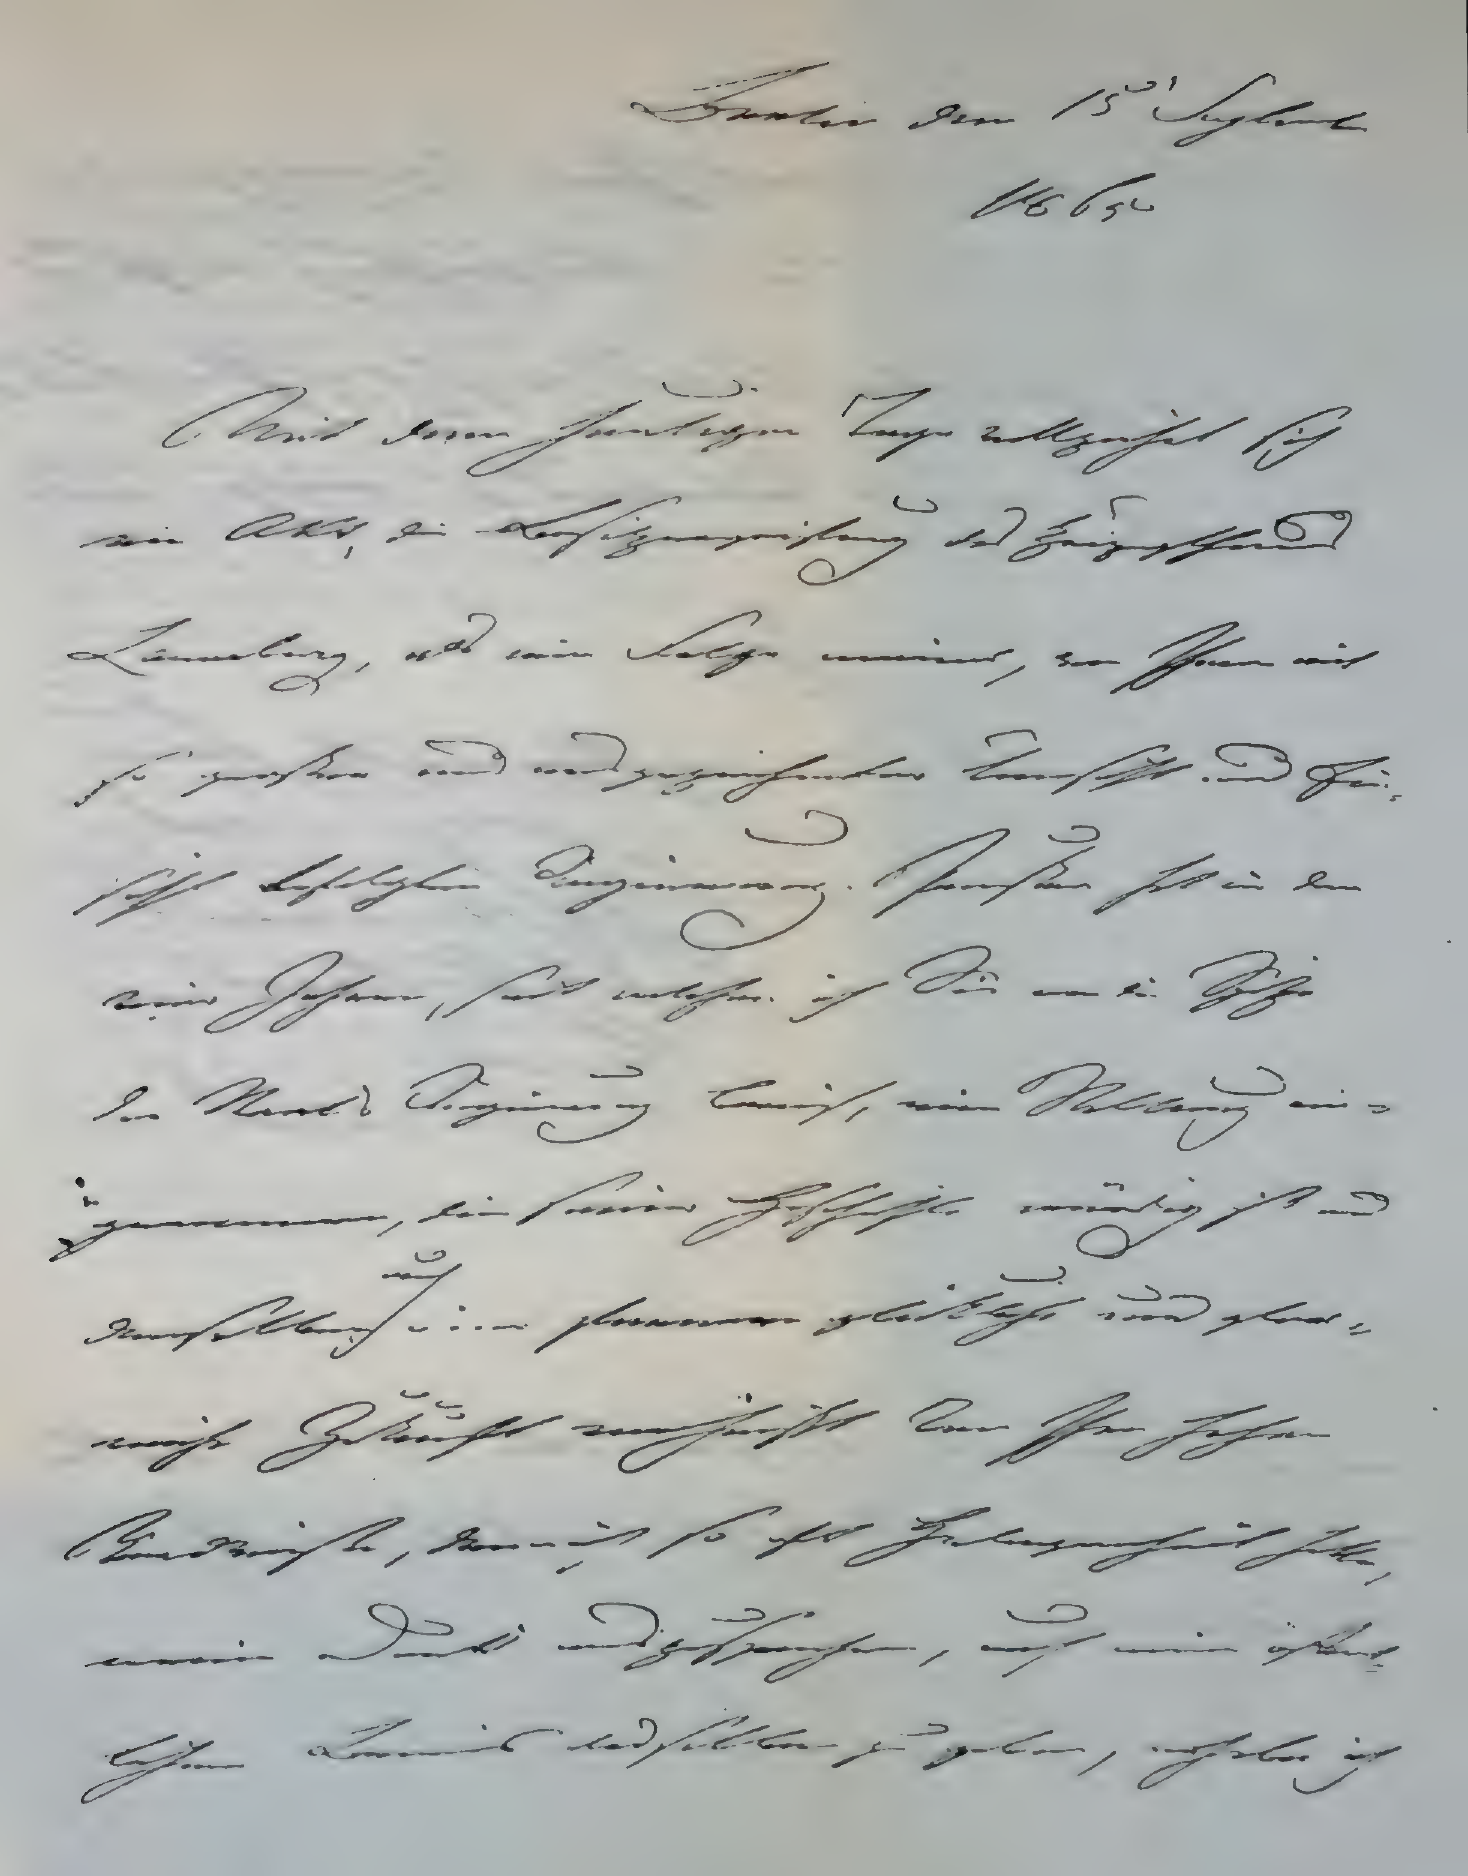 Berlin den 15t September
1865
Mit dem heutigen Tage vollziehet sich
ein Akt, die Besitzergreifung des Herzogthums
Lauenburg, als eine Folge meiner, von Ihnen mit
so großer und ausgezeichneter Umsicht und Ein-
sicht befolgten Regierung. Preußen hat in den
vier Jahren, seit welchen ich Sie an die Spitze
der Staats Regierung berief, eine Stellung ein-
genommen, die seiner Geschichte würdig ist und
demselben auch eine fernere glückliche und glor-
reiche Zukunft verheißt. Um Ihrem hohen
Verdienste, dem ich so oft Gelegenheit hatte,
meinen Dank auszusprechen, auch einen öffent-
lichen Beweis desselben zu geben, erhebe ich